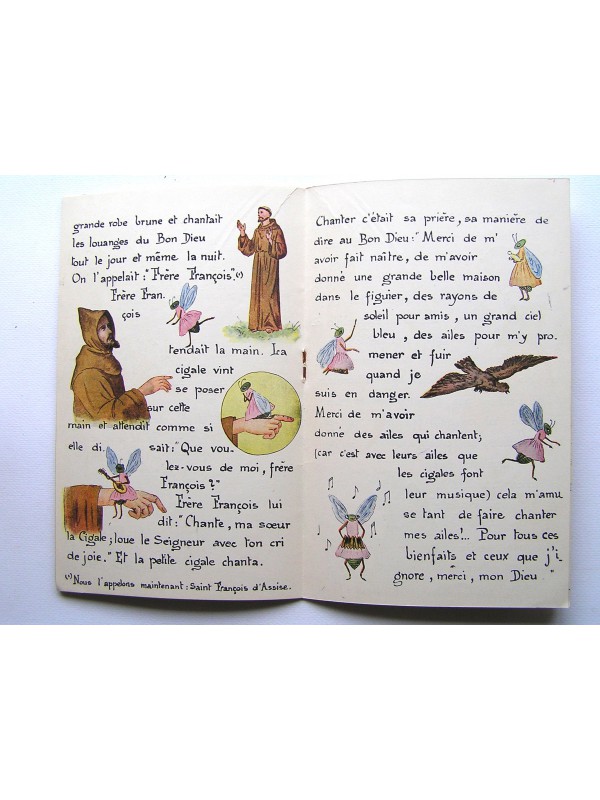 grande robe brune et chantait
les louanges du Bon Dieu
tout le jour et même la nuit.
On l'appelait : "Frère François".(*)
Frère Fran.
çois
tendait la main. La
cigale vint
se poser
sur cette
main et attendit comme si
elle di. sait : "Que vou.
lez-vous de moi, frère
François ?"
Frère François lui
dit : "Chante, ma sœur
la Cigale ; loue le Seigneur avec ton cri
de joie." Et la petite cigale chanta.
(*) Nous l'appelons maintenant : Saint François d'Assise.
Chanter c'était sa prière, sa manière de
dire au Bon Dieu : "Merci de m'
avoir fait naître, de m'avoir
donné une grande belle maison
dans le figuier, des rayons de
soleil pour amis, un grand ciel
bleu, des ailes pour m'y pro.
mener et fuir
quand je
suis en danger.
Merci de m'avoir
donné des ailes qui chantent;
(car c'est avec leurs ailes que
les cigales font
leur musique) cela m'amu
se tant de faire chanter
mes ailes !... Pour tous ces
bienfaits et ceux que j'i
gnore, merci, mon Dieu"